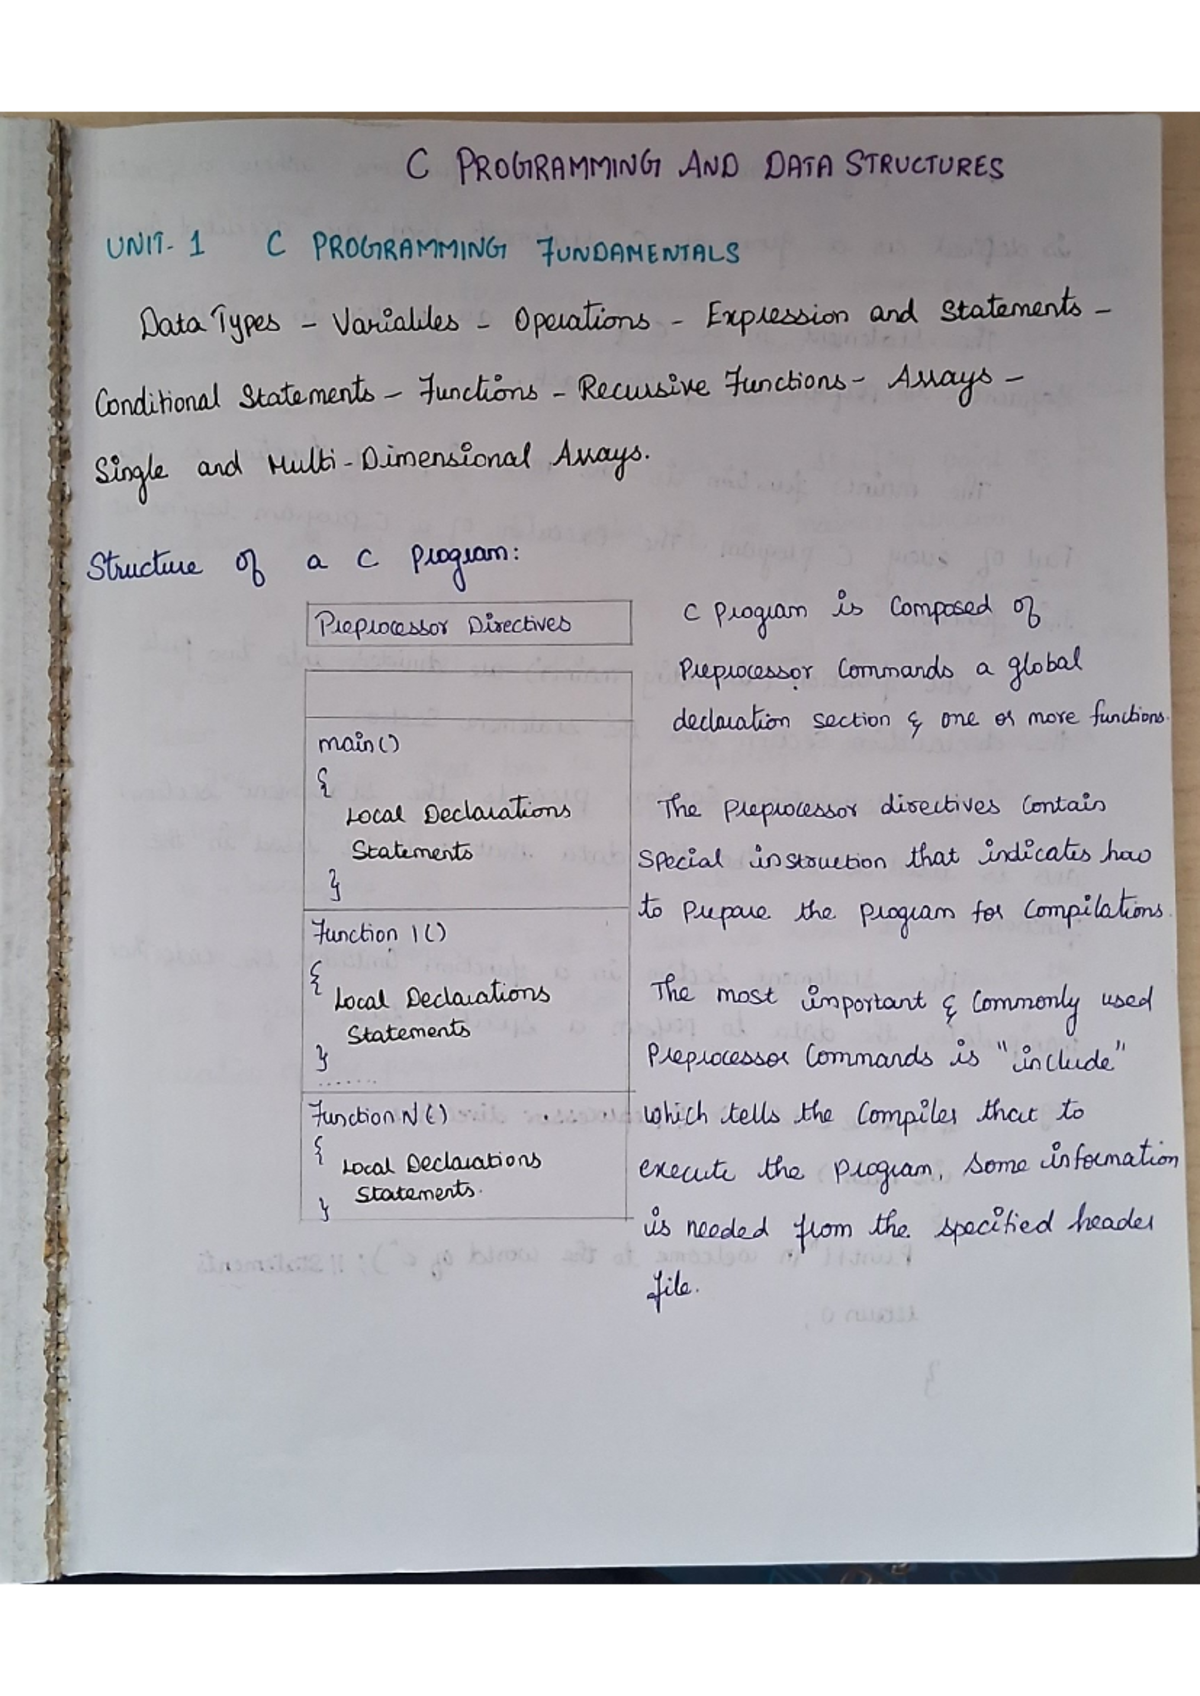 C PROGRAMMING AND DATA STRUCTURES
UNIT-1 C PROGRAMMING FUNDAMENTALS
Data Types - Variables - Operations - Expression and Statements -
Conditional Statements - Functions - Recursive Functions - Arrays -
Single and Multi-Dimensional Arrays.
Structure of a C Program:
Preprocessor Directives
main()
{
Local Declarations
Statements
}
Function 1()
{
Local Declarations
Statements
}
.......
Function N()
{
Local Declarations
Statements.
}
C Program is Composed of
Preprocessor Commands a global
declaration section & one or more functions.
The Preprocessor directives Contain
Special instruction that indicates how
to Prepare the Program for Compilations.
The most important & Commonly used
Preprocessor Commands is "include"
which tells the Compiler that to
execute the Program, Some information
is needed from the specified header
file.